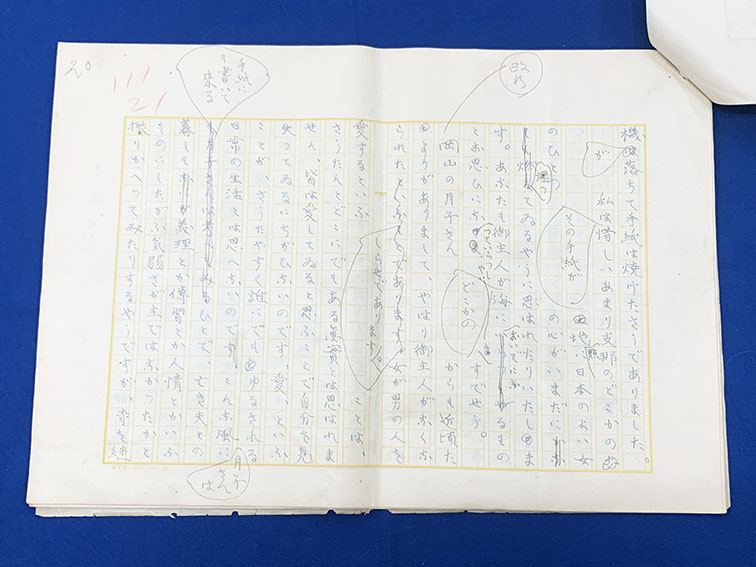 機は落ちて手紙は焼けたさうでありました。
が
私は惜しいあまり支那のどこかの
その手紙が
地に日本のよい女
のひとつ の心がいまだに
燃えてゐるやうに思はれたりいたしま
す。あなたも御主人が海に
おいでに
るもの
とお思ひに すでせう。
改行
岡山の月子さん
どこかの
からも近頃た
よりがありまして、やはり御主人がなくな
られた
しらせであります。
女が男の人を
愛するといふ ことは、
さうたんとどこにでもある真実とは思はれま
せん。皆は愛してゐると思ふことで自分を見
失つてゐるにちがひないのです。愛、といふ
ことが、さうたやすく誰にでもあゆるされる
日常の生活とは思へないのです。こんな風に
手紙に
も書いて
来る
月子
さん
は
ひとで、亡き夫との
暮しも 義理とか練習とか人情とかいふ
ものにしたがふ気弱さが主ではなかつたかと
振りかへつてみたりするやうですが、
20
111
21